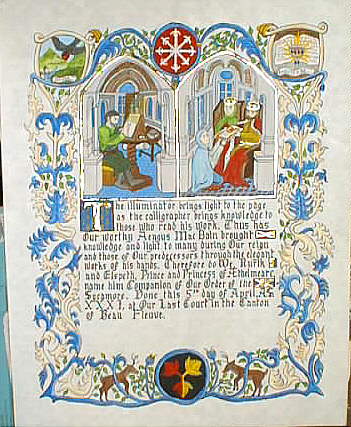 The illuminator brings light to the page
as the calligrapher brings knowledge to
those who read his work. Thus has
Our worthy Aengus MacBain brought
knowledge and light to many during Our reign
and those of Our predecessors through the elegant
works of his hands. Therefore do We, Rurik
and Elspeth, Prince and Princess of Æthelmearc,
name him Companion of Our Order of the
Sycamore. Done this 5th day of April, A.S.
XXXI, at Our Last Court in the Canton
of Beau Fleuve.